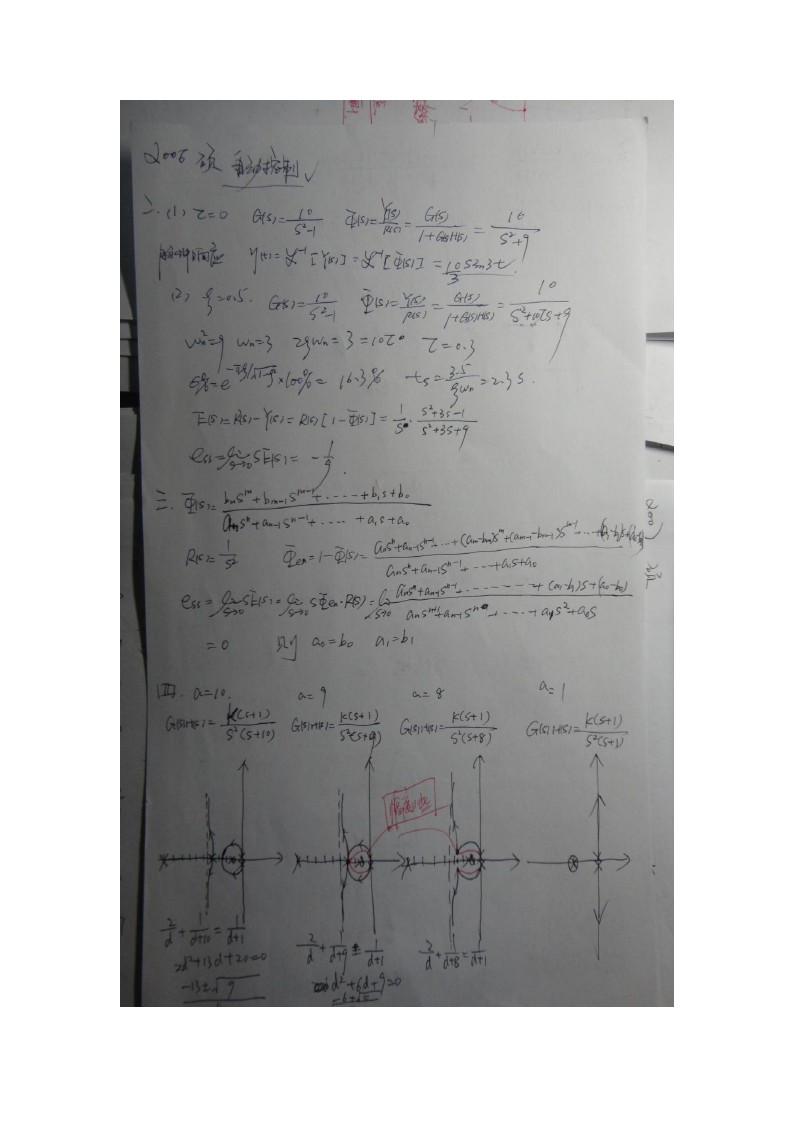 2006 硕 自动控制 ✓
二. (1) τ=0 G(s)=10/(s²-1) Φ(s)=Y(s)/R(s)=G(s)/(1+G(s)H(s))=10/(s²+9)
y(t)=ℒ⁻¹[Y(s)]=ℒ⁻¹[Φ(s)]=10/3 sin3t.
(2) ξ=0.5. G(s)=10/(s²-1) Φ(s)=Y(s)/R(s)=G(s)/(1+G(s)H(s))=10/(s²+10τs+9)
ωn²=9 ωn=3 2ξωn=3=10τ τ=0.3
σ%=e^(-πξ/√(1-ξ²))×100%=16.3% ts=3.5/(ξωn)=2.3s.
E(s)=R(s)-Y(s)=R(s)[1-Φ(s)]=1/s·(s²+3s-1)/(s²+3s+9)
ess=lim s→0 sE(s)=-1/9.
三. Φ(s)=(bmsᵐ+bm-1sᵐ⁻¹+····+b1s+b0)/(ansⁿ+an-1sⁿ⁻¹+····+a1s+a0)
R(s)=1/s² Φen=1-Φ(s)=(ansⁿ+an-1sⁿ⁻¹+···+(am-bm)sᵐ+(am-1-bm-1)sᵐ⁻¹+···+(a1-b1)s+(a0-b0))/(ansⁿ+an-1sⁿ⁻¹+···+a1s+a0)
ess=lim s→0 sE(s)=lim s→0 sΦen·R(s)=lim s→0 (ansⁿ+an-1sⁿ⁻¹+······+(a1-b1)s+(a0-b0))/(ansⁿ⁺¹+an-1sⁿ+····+a1s²+a0s)
=0 则 a0=b0 a1=b1
四. a=10. a=9 a=8 a=1
G(s)H(s)=K(s+1)/(s²(s+10)) G(s)H(s)=K(s+1)/(s²(s+9)) G(s)H(s)=K(s+1)/(s²(s+8)) G(s)H(s)=K(s+1)/(s²(s+1))
2/d+1/(d+10)=1/(d+1) 2/d+1/(d+9)=1/(d+1) 2/d+1/(d+8)=1/(d+1)
2d²+13d+20=0 d²+6d+9=0
-13±√9